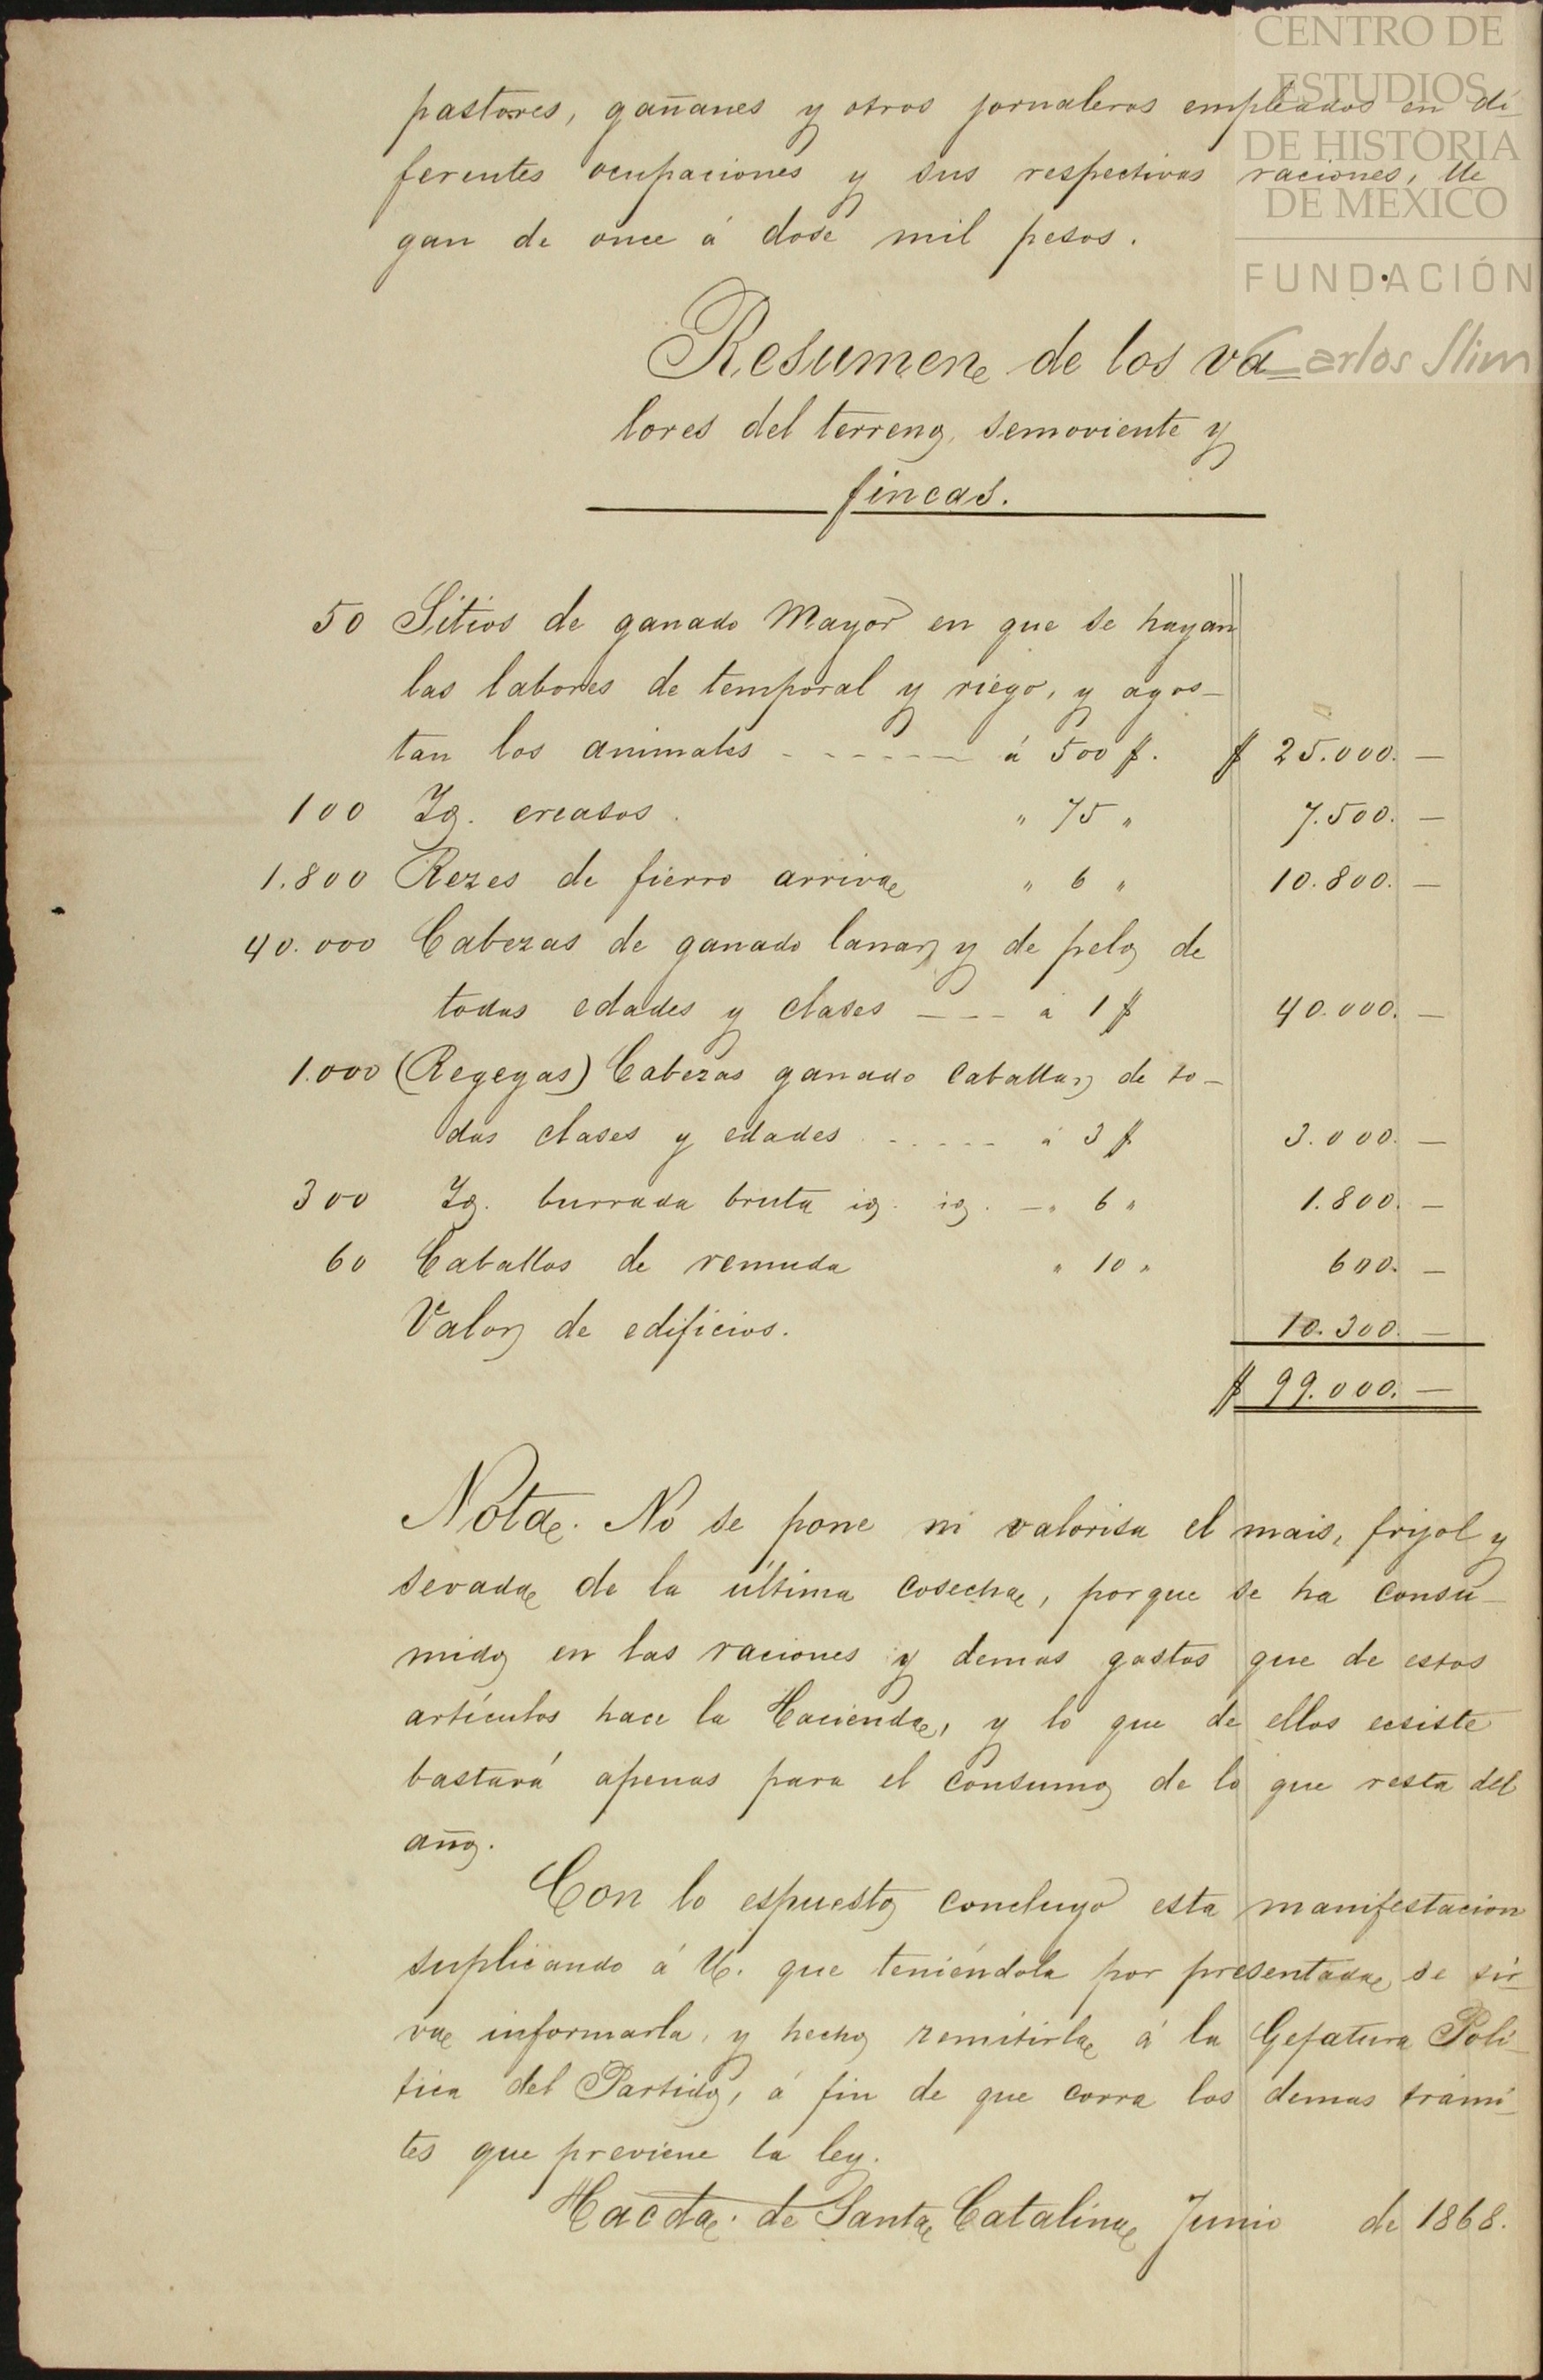 CENTRO DE
ESTUDIOS
DE HISTORIA
DE MEXICO
FUNDACIÓN
Carlos Slim
pastores, gañanes y otros jornaleros empleados en di-
ferentes ocupaciones y sus respectivas raciones, lle
gan de once á dose mil pesos.
Resumen de los va-
lores del terreno, semoviente y
fincas.
50 Sitios de ganado Mayor en que se hayan
las labores de temporal y riego, y agos-
tan los animales - - - - - - á 500 $. $ 25.000. —
100 Id. creasos. " 75 " 7.500. —
1.800 Rezes de fierro arriva " 6 " 10.800. —
40.000 Cabezas de ganado lanar y de pelo de
todas edades y clases — - - á 1 $ 40.000. —
1.000 (Regegas) Cabezas ganado caballar de to-
das clases y edades . - - - - - á 3 $ 3.000. —
300 Id. burrada bruta id. id. — " 6 " 1.800. —
60 Caballos de remuda " 10 " 600. —
Valor de edificios. 10.300. —
$ 99.000. —
Nota. No se pone ni valorisa el mais, frijol y
sevada de la última cosecha, porque se ha consu-
mido en las raciones y demas gastos que de estos
artículos hace la Hacienda, y lo que de ellos ecsiste
bastará apenas para el consumo de lo que resta del
año.
Con lo espuesto concluyo esta manifestacion
suplicando á U. que teniéndola por presentada se sir-
va informarla, y hecho remitirla á la Gefatura Poli-
tica del Partido, á fin de que corra los demas trámi-
tes que previene la ley.
Hacda. de Santa Catalina Junio de 1868.